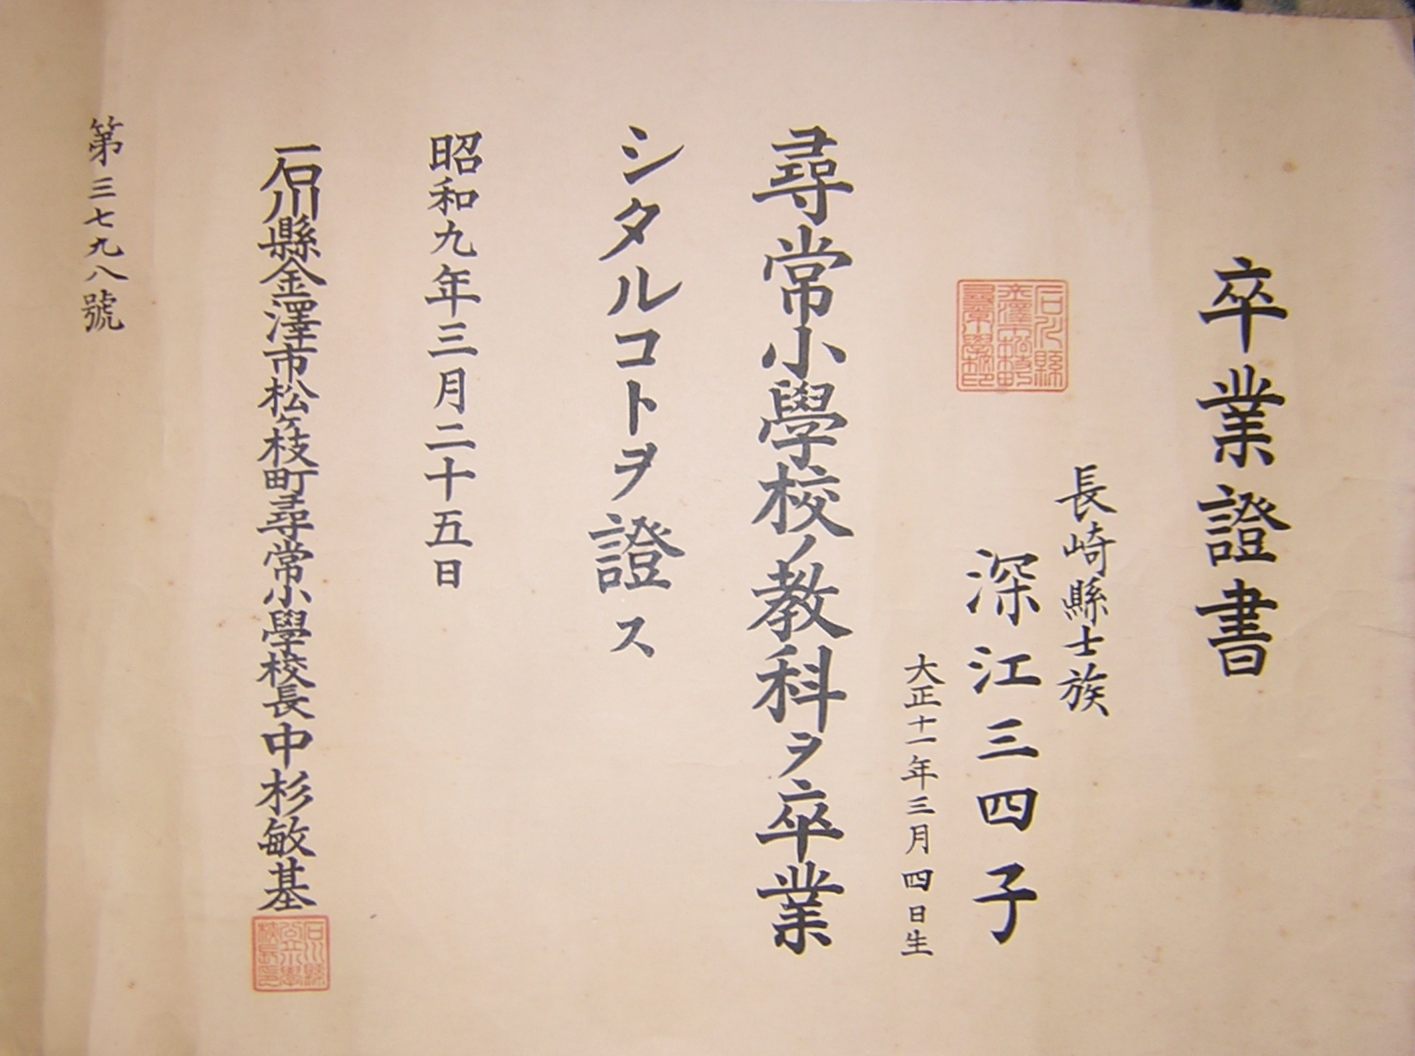 卒業證書
長崎縣士族
深江三四子
大正十一年三月四日生
尋常小學校ノ教科ヲ卒業
シタルコトヲ證ス
昭和九年三月二十五日
石川縣金澤市松ヶ枝町尋常小學校長中杉敏基
第三七九八號